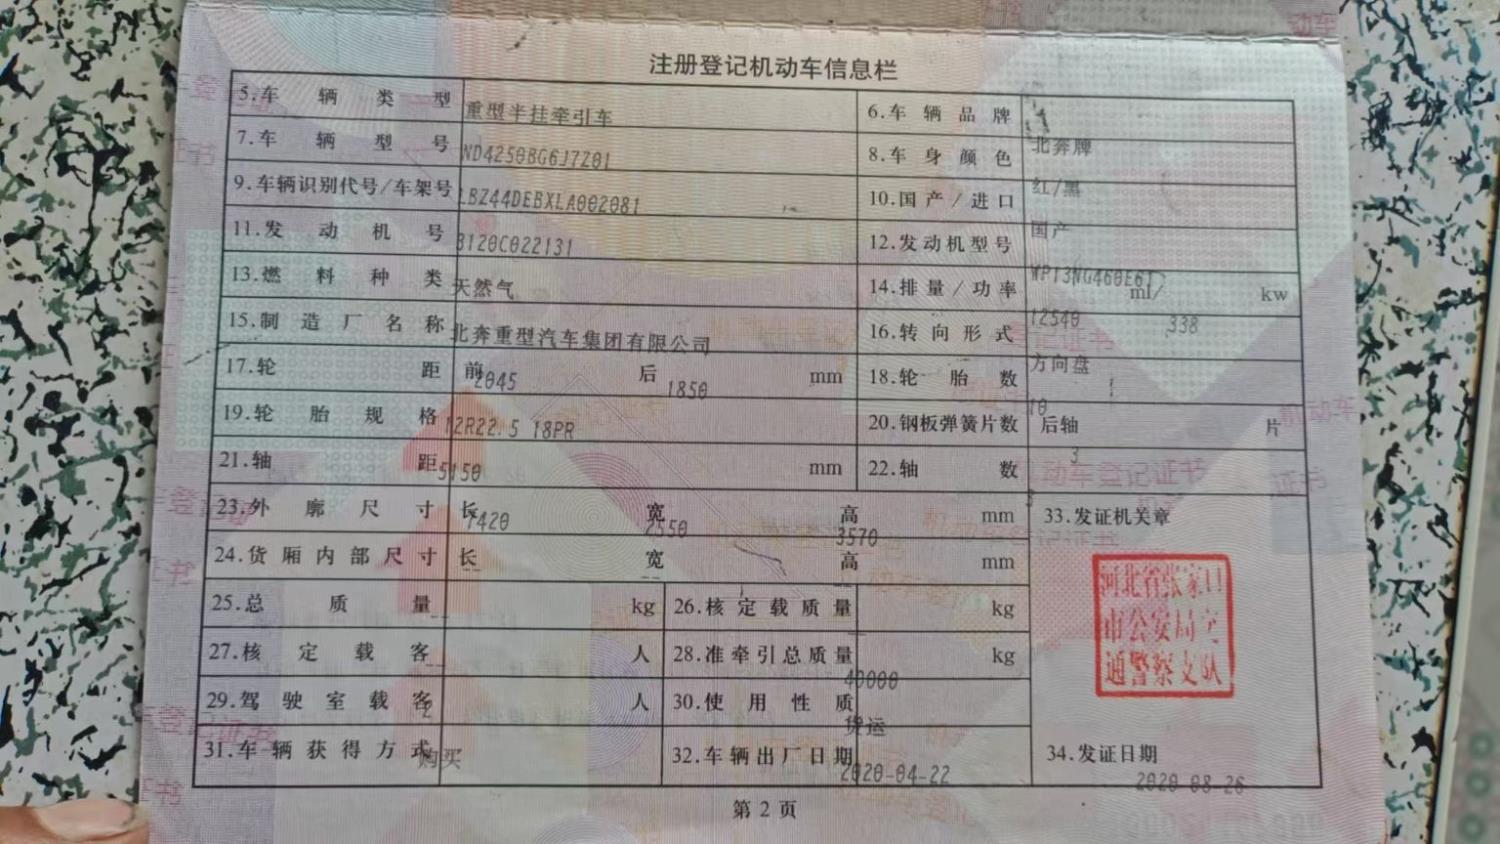 注册登记机动车信息栏
5.车辆类型 重型半挂牵引车 6.车辆品牌 北奔牌
7.车辆型号 ND4250BG6J7Z01 8.车身颜色 红/黑
9.车辆识别代号/车架号 LBZ44DEBXLA002081 10.国产/进口 国产
11.发动机号 3120C022131 12.发动机型号 WP13NG460E61
13.燃料种类 天然气 14.排量/功率 12540 ml/ 338 kw
15.制造厂名称 北奔重型汽车集团有限公司 16.转向形式 方向盘
17.轮距 前 2045 后 1850 mm 18.轮胎数 10
19.轮胎规格 12R22.5 18PR 20.钢板弹簧片数 后轴 3 片
21.轴距 5150 mm 22.轴数 3
23.外廓尺寸 长 7420 宽 2550 高 3570 mm 33.发证机关章
24.货厢内部尺寸 长 -- 宽 -- 高 -- mm
25.总质量 -- kg 26.核定载质量 -- kg
27.核定载客 -- 人 28.准牵引总质量 40000 kg
29.驾驶室载客 2 人 30.使用性质 货运
31.车辆获得方式 购买 32.车辆出厂日期 2020-04-22 34.发证日期 2020-08-26
河北省张家口
市公安局交
通警察支队
第2页